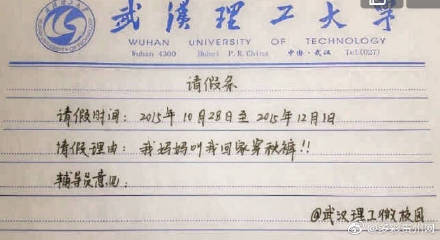 武漢理工大学
WUHAN UNIVERSITY OF TECHNOLOGY
Wuhan 4300 Hubei P.R.China 中國·武汉 Tel:(027)
请假条
请假时间：2015年10月28日至2015年12月1日
请假理由：我妈妈叫我回家穿秋裤!!
辅导员意见：
@武汉理工微校园
@多彩贵州网